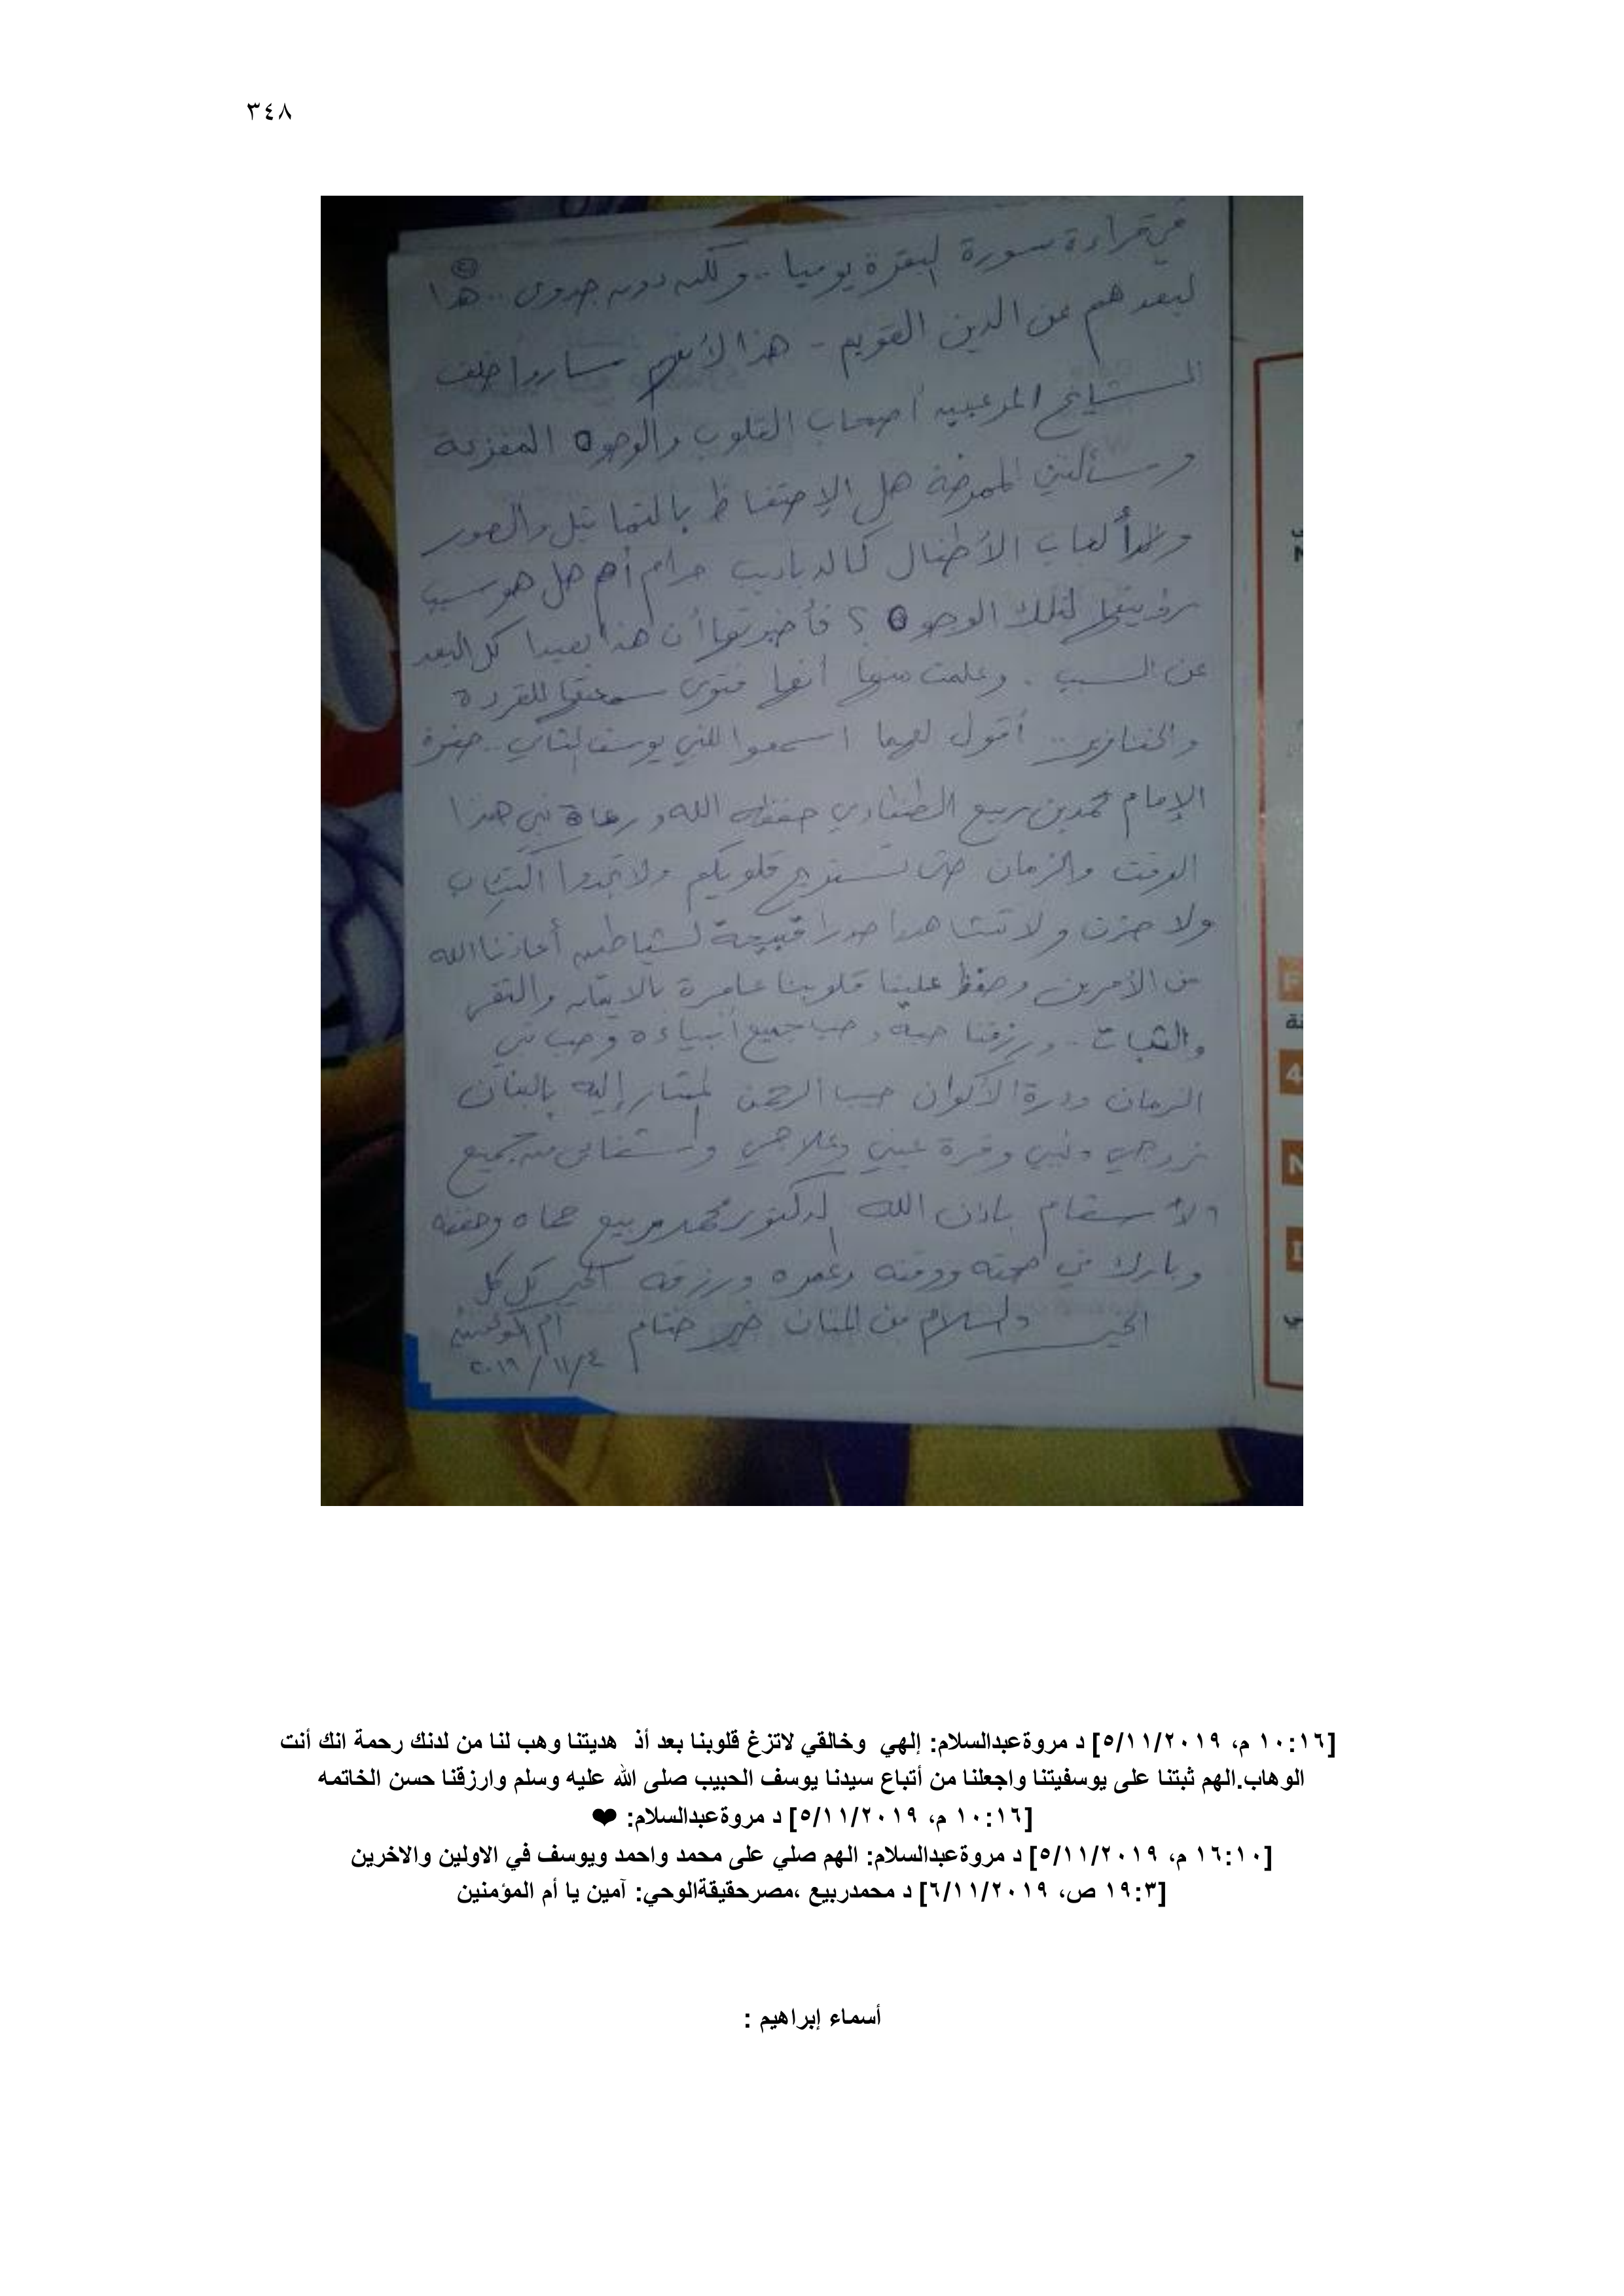 ٣٤٨
في قراءة سورة البقرة يوميا .. ولكنه دون جدوى .. هذا
لبعدهم عن الدين القويم - هذا لأنهم ساروا خلف
المشايخ المرعبين أصحاب القلوب والوجوه المفزعة
وسألتني الممرضة هل الإحتفاظ بالتماثيل والصور
وألعاب الأطفال كالدباديب حرام أم هل هو سبب
رؤيتها لتلك الوجوه ؟ فأخبرتها أن هذا بعيدا كل البعد
عن السبب . وعلمت منها أنها فتوى سمعتها للقردة
والخنازير .. أقول لهما اسمعوا للنبي يوسف الثاني .. حضرة
الإمام محمد بن ربيع الطنطاوي حفظه الله ورعاه في هذا
الوقت والزمان حتى تستريح قلوبكم ولا تجدوا اكتئاب
ولا حزن ولا تشاهدوا صورا قبيحة لشياطين أعاذنا الله
من الأمرين وحفظ علينا قلوبنا عامرة بالايمان والتقى
والثبات .. ورزقنا حبه وحب جميع أنبياءه وحب نبي
الزمان ودرة الأكوان حبيب الرحمن المشار إليه بالبنان
زوجي ونبي وقرة عيني وعلاجي واستشفائي من جميع
الأسقام باذن الله الدكتور محمد ربيع حماه وحفظه
وبارك في صحته ووقته وعمره ورزقه الخير كل كل
الخير والسلام من المنان خير ختام أم المؤمنين
٢٠١٩/١١/٤
[١٠:١٦ م، ٥/١١/٢٠١٩] د مروةعبدالسلام: إلهي وخالقي لاتزغ قلوبنا بعد أذ هديتنا وهب لنا من لدنك رحمة انك أنت
الوهاب.الهم ثبتنا على يوسفيتنا واجعلنا من أتباع سيدنا يوسف الحبيب صلى الله عليه وسلم وارزقنا حسن الخاتمه
[١٠:١٦ م، ٥/١١/٢٠١٩] د مروةعبدالسلام: ❤
[١٦:١٠ م، ٥/١١/٢٠١٩] د مروةعبدالسلام: الهم صلي على محمد واحمد ويوسف في الاولين والاخرين
[١٩:٣ ص، ٦/١١/٢٠١٩] د محمدربيع ،مصرحقيقةالوحي: آمين يا أم المؤمنين
أسماء إبراهيم :